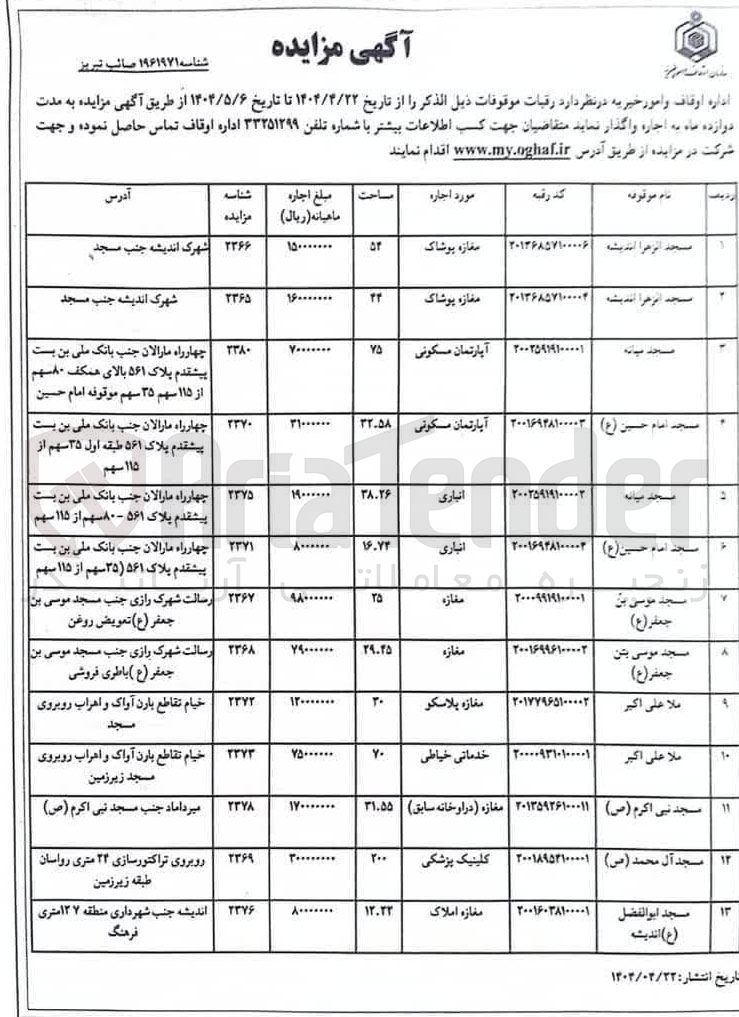 آگهی مزایده
شناسه ۱۹۶۱۹۷۱ صائب تبریز
سازمان اوقاف و امور خیریه
اداره اوقاف وامورخیریه درنظردارد رقبات موقوفات ذیل الذکر را از تاریخ ۱۴۰۴/۴/۲۲ تا تاریخ ۱۴۰۴/۵/۶ از طریق آگهی مزایده به مدت
دوازده ماه به اجاره واگذار نماید متقاضیان جهت کسب اطلاعات بیشتر با شماره تلفن ۳۳۲۵۱۲۹۹ اداره اوقاف تماس حاصل نموده و جهت
شرکت در مزایده از طریق آدرس www.my.oghaf.ir اقدام نمایند
ردیف نام موقوفه کد رقبه مورد اجاره مساحت مبلغ اجاره ماهیانه(ریال) شناسه مزایده آدرس
۱ مسجد الزهرا اندیشه ۲۰۱۳۶۸۵۷۱۰۰۰۰۶ مغازه پوشاک ۵۴ ۱۵۰۰۰۰۰۰۰ ۲۳۶۶ شهرک اندیشه جنب مسجد
۲ مسجد الزهرا اندیشه ۲۰۱۳۶۸۵۷۱۰۰۰۰۴ مغازه پوشاک ۴۴ ۱۶۰۰۰۰۰۰۰ ۲۳۶۵ شهرک اندیشه جنب مسجد
۳ مسجد میانه ۲۰۰۲۵۹۱۹۱۰۰۰۰۱ آپارتمان مسکونی ۷۵ ۷۰۰۰۰۰۰۰ ۲۳۸۰ چهارراه مارالان جنب بانک ملی بن بست
پیشقدم پلاک ۵۶۱ بالای همکف ۸۰سهم
از ۱۱۵سهم ۳۵سهم موقوفه امام حسین
۴ مسجد امام حسین (ع) ۲۰۰۱۶۹۴۸۱۰۰۰۰۳ آپارتمان مسکونی ۳۲.۵۸ ۳۱۰۰۰۰۰۰ ۲۳۷۰ چهارراه مارالان جنب بانک ملی بن بست
پیشقدم پلاک ۵۶۱ طبقه اول ۳۵سهم از
۱۱۵سهم
۵ مسجد میانه ۲۰۰۲۵۹۱۹۱۰۰۰۰۲ انباری ۳۸.۲۶ ۱۹۰۰۰۰۰۰ ۲۳۷۵ چهارراه مارالان جنب بانک ملی بن بست
پیشقدم پلاک ۵۶۱ -۸۰سهم از ۱۱۵سهم
۶ مسجد امام حسین(ع) ۲۰۰۱۶۹۴۸۱۰۰۰۰۴ انباری ۱۶.۷۴ ۸۰۰۰۰۰۰ ۲۳۷۱ چهارراه مارالان جنب بانک ملی بن بست
پیشقدم پلاک ۵۶۱ (۳۵سهم از ۱۱۵سهم
۷ مسجد موسی بن جعفر(ع) ۲۰۰۰۹۹۱۹۱۰۰۰۰۱ مغازه ۲۵ ۹۸۰۰۰۰۰۰ ۲۳۶۷ رسالت شهرک رازی جنب مسجد موسی بن
جعفر (ع)تعویض روغن
۸ مسجد موسی بتن جعفر(ع) ۲۰۰۱۶۹۹۶۱۰۰۰۰۲ مغازه ۲۹.۴۵ ۷۹۰۰۰۰۰۰ ۲۳۶۸ رسالت شهرک رازی جنب مسجد موسی بن
جعفر (ع )باطری فروشی
۹ ملا علی اکبر ۲۰۱۷۷۹۶۵۱۰۰۰۰۲ مغازه پلاسکو ۳۰ ۱۲۰۰۰۰۰۰۰ ۲۳۷۲ خیام تقاطع بارن آواک و اهراب روبروی
مسجد
۱۰ ملا علی اکبر ۲۰۰۰۰۹۳۱۰۱۰۰۰۰۱ خدماتی خیاطی ۷۰ ۷۵۰۰۰۰۰۰ ۲۳۷۳ خیام تقاطع بارن آواک و اهراب روبروی
مسجد زیرزمین
۱۱ مسجد نبی اکرم (ص) ۲۰۱۳۵۹۲۶۱۰۰۰۱۱ مغازه (دراوخانه سابق) ۳۱.۵۵ ۱۷۰۰۰۰۰۰۰ ۲۳۷۸ میرداماد جنب مسجد نبی اکرم (ص)
۱۲ مسجد آل محمد (ص) ۲۰۰۱۸۹۵۴۱۰۰۰۰۱ کلینیک پزشکی ۲۰۰ ۳۰۰۰۰۰۰۰۰ ۲۳۶۹ روبروی تراکتورسازی ۲۴ متری رواسان
طبقه زیرزمین
۱۳ مسجد ابوالفضل (ع)اندیشه ۲۰۰۱۶۰۳۸۱۰۰۰۰۱ مغازه املاک ۱۲.۲۲ ۸۰۰۰۰۰۰۰ ۲۳۷۶ اندیشه جنب شهرداری منطقه ۷ ۱۲متری
فرهنگ
تاریخ انتشار: ۱۴۰۴/۰۴/۲۲
AriaTender
زنجیره معاملاتی آریا تندر